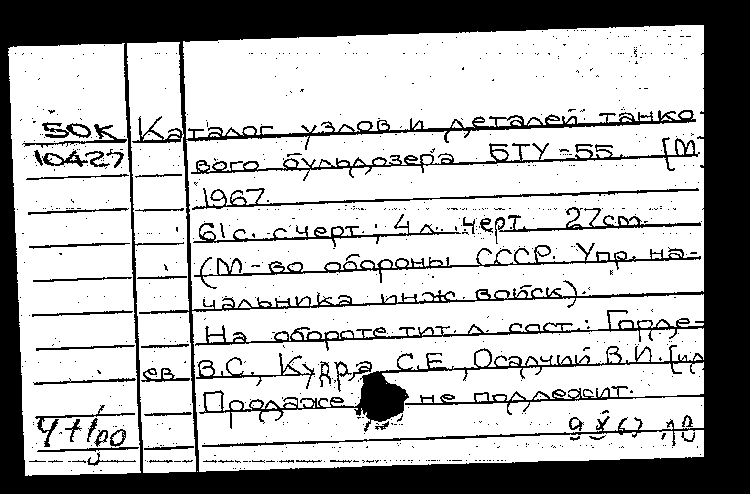 50К Каталог узлов и деталей танко-
10427 вого бульдозера БТУ-55. [М
1967.
61 с. с черт.; 4 л. черт. 27 cm.
(М-во обороны СССР. Упр. на-
чальника инж. войск).
На обороте тит. л. сост.: Горде-
ев В.С., Курра С.Е., Осадчий В.И. [и др
Продаже не подлежит.
9 X 67